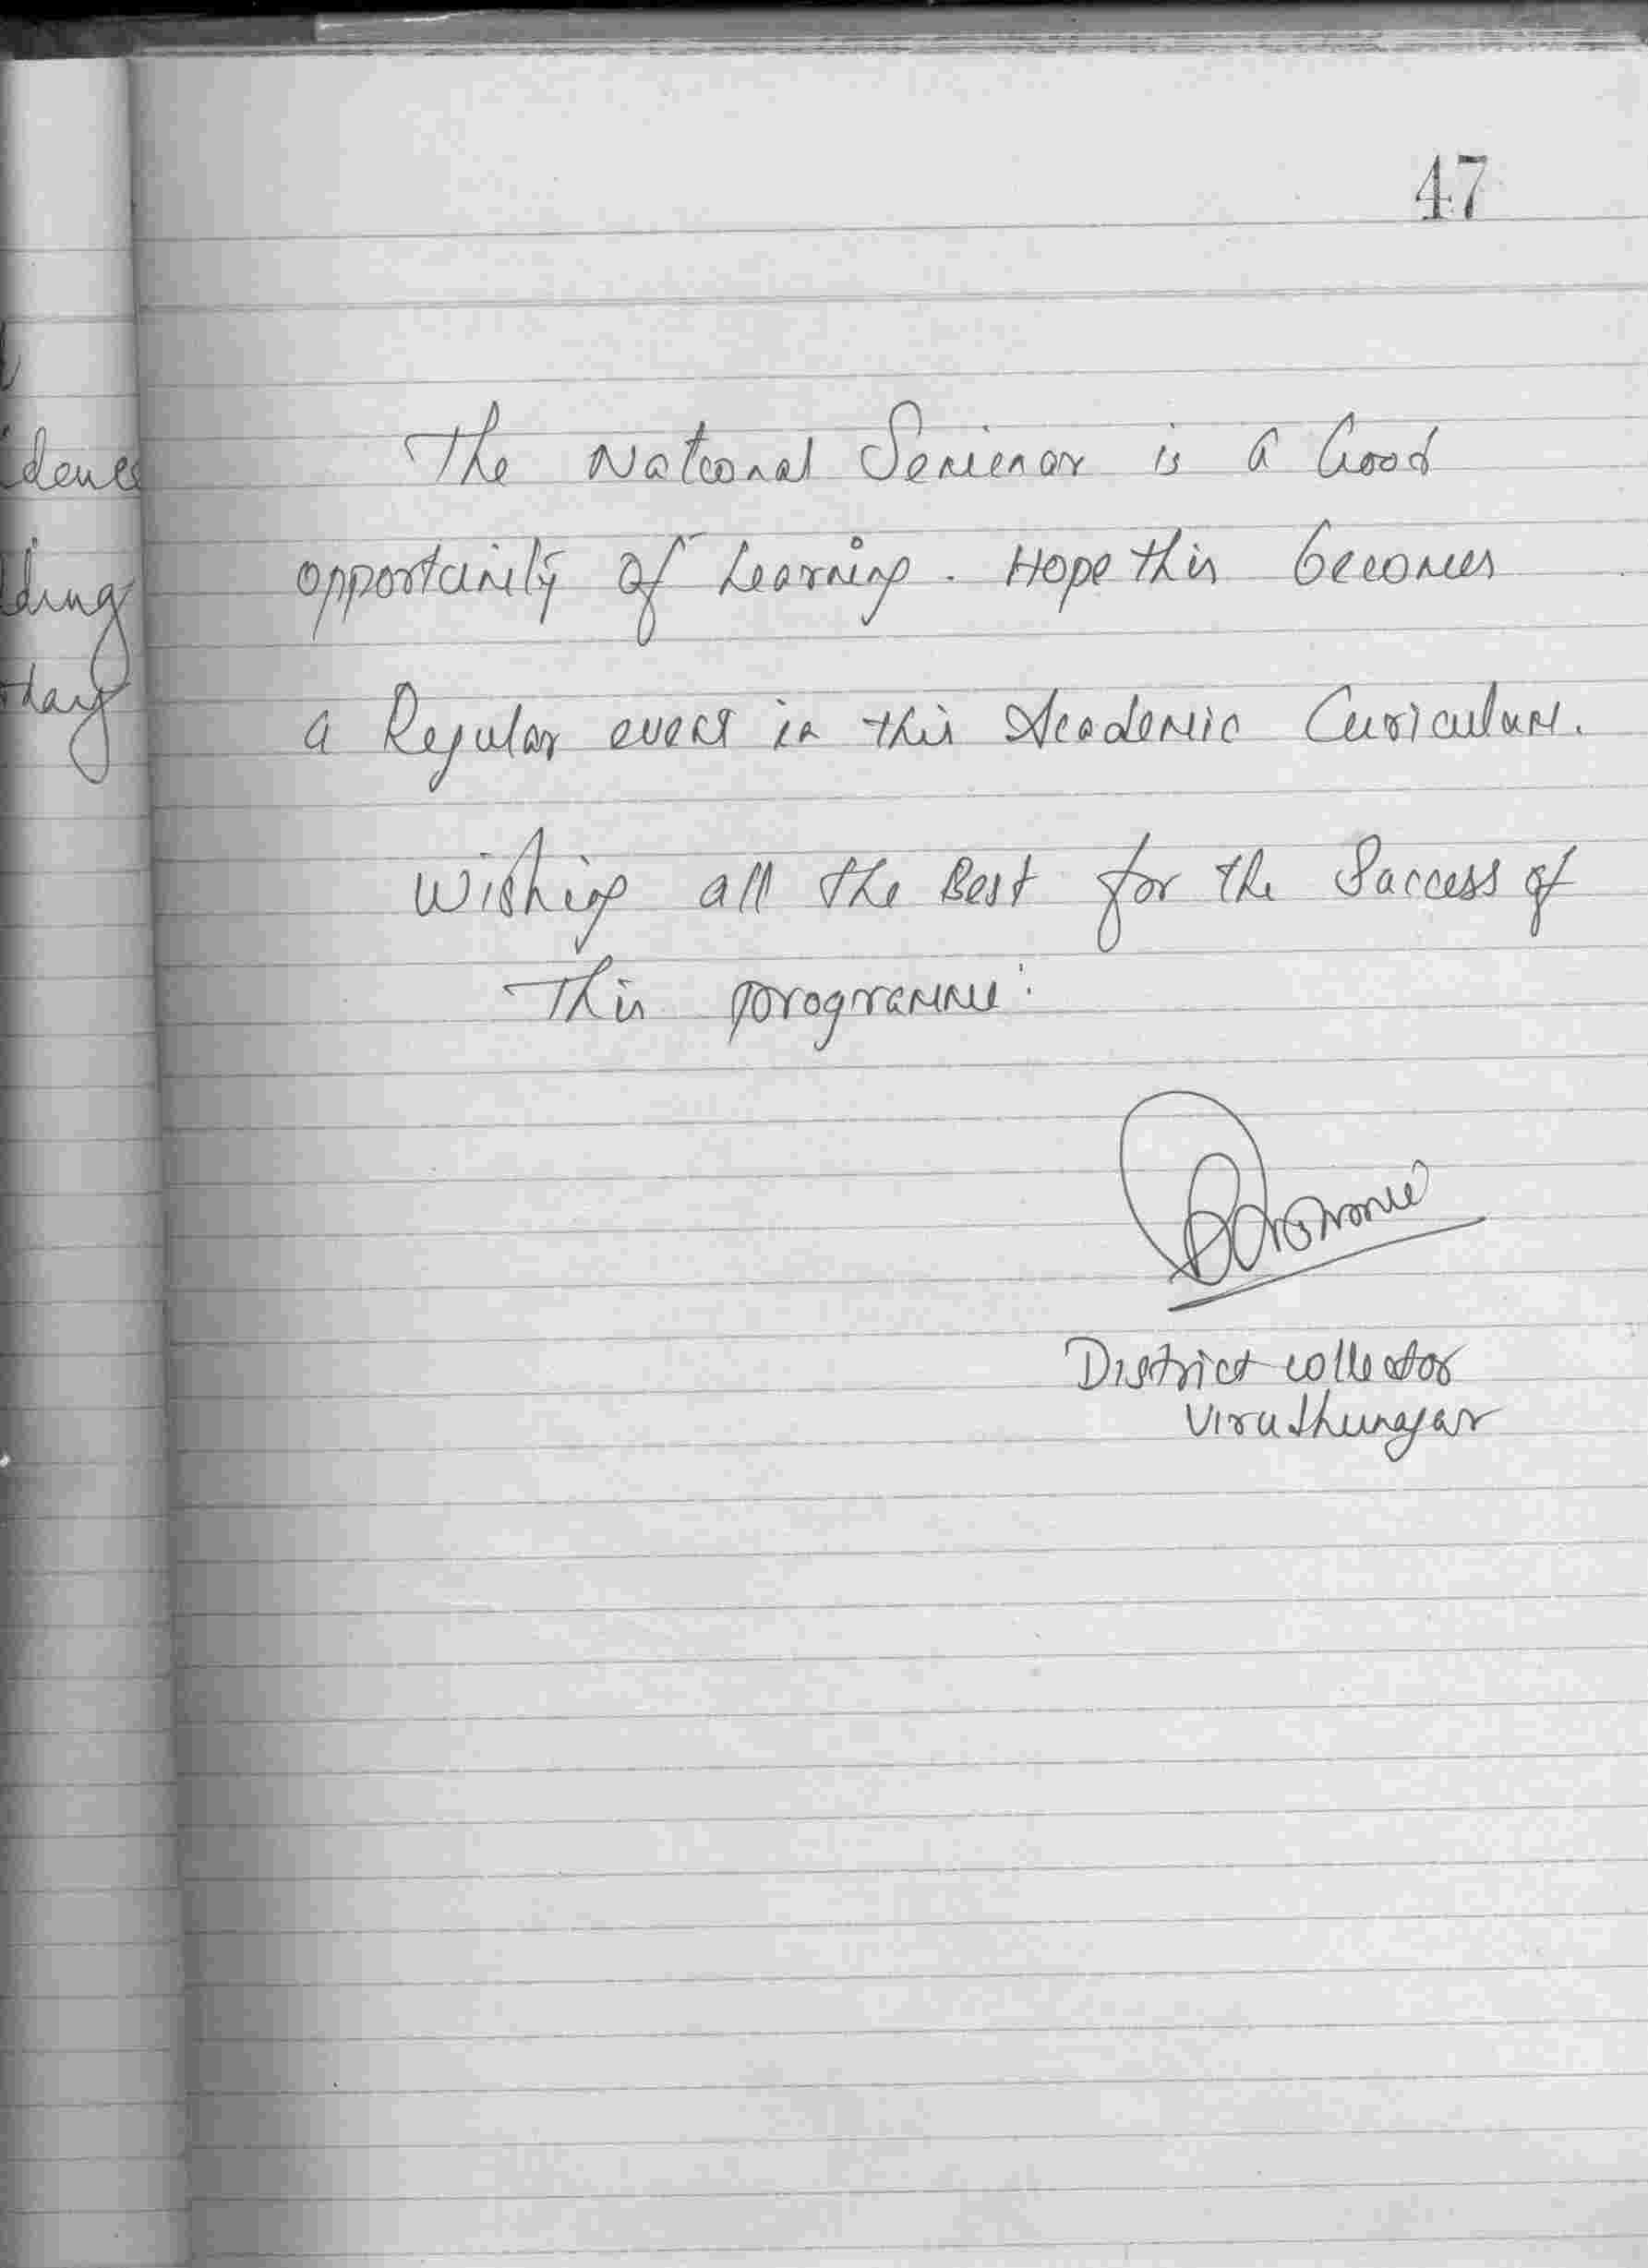 47
The National Seminar is a Good
opportunity of Learning. Hope this becomes
a Regular event in this Academic Curiculum.
Wishing all the Best for the Success of
This programme.
District collector
Viruthunagar
dence
ding
day